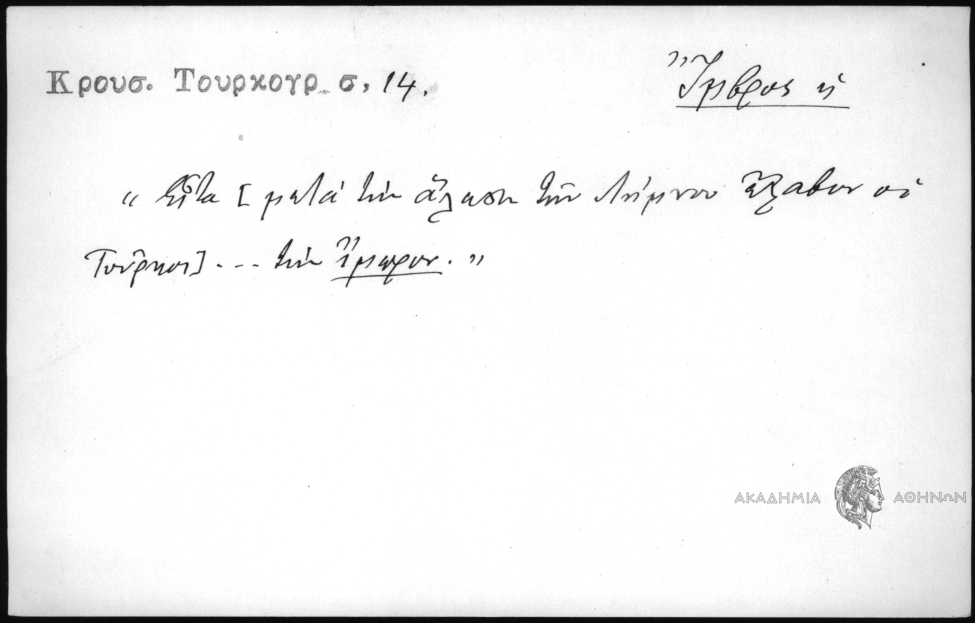 Κρουσ. Τουρκογρ. σ. 14.
Ἴμβρος ἡ
" Εἶτα [ μετὰ τὴν ἅλωσιν τῆς Λήμνου ἔλαβον οἱ
Τοῦρκοι] ... τὴν Ἴμπρον. "
ΑΚΑΔΗΜΙΑ ΑΘΗΝΩΝ